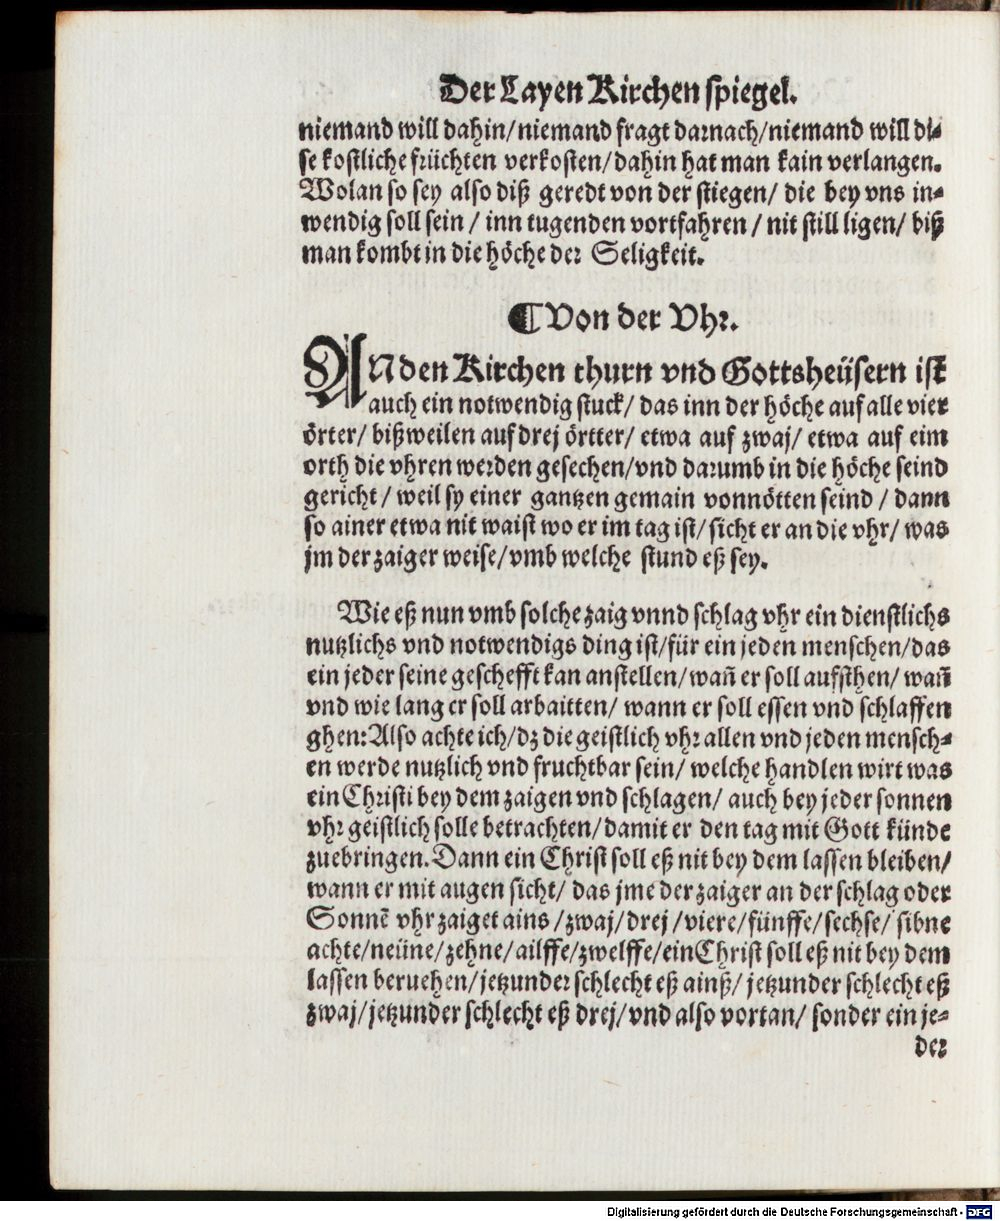 Der Layen Kirchen spiegel.
niemand will dahin/niemand fragt darnach/niemand will di-
se kostliche früchten verkosten/dahin hat man kain verlangen.
Wolan so sey also diß geredt von der stiegen/ die bey vns in-
wendig soll sein / inn tugenden vortfahren / nit still ligen/ biß
man kombt in die höche der Seligkeit.
¶Von der Vhr.
ANden Kirchen thurn vnd Gottsheüsern ist
auch ein notwendig stuck/ das inn der höche auf alle vier
örter/ bißweilen auf drej örtter/ etwa auf zwaj/ etwa auf eim
orth die vhren werden gesechen/vnd darumb in die höche seind
gericht / weil sy einer gantzen gemain vonnötten seind / dann
so ainer etwa nit waist wo er im tag ist/ sicht er an die vhr/ was
jm der zaiger weise/vmb welche stund eß sey.
Wie eß nun vmb solche zaig vnnd schlag vhr ein dienstlichs
nutzlichs vnd notwendigs ding ist/für ein jeden menschen/das
ein jeder seine geschefft kan anstellen/wañ er soll aufsthen/ wañ
vnd wie lang er soll arbaitten/ wann er soll essen vnd schlaffen
ghen: Also achte ich/dz die geistlich vhr allen vnd jeden mensch-
en werde nutzlich vnd fruchtbar sein/ welche handlen wirt was
ein Christi bey dem zaigen vnd schlagen/ auch bey jeder sonnen
vhr geistlich solle betrachten/damit er den tag mit Gott künde
zuebringen. Dann ein Christ soll eß nit bey dem lassen bleiben/
wann er mit augen sicht/ das jme der zaiger an der schlag oder
Sonnē vhr zaiget ains /zwaj/drej /viere/fünffe/sechse/ sibne
achte/neüne/zehne/ailffe/zwelffe/ein Christ soll eß nit bey dem
lassen beruehen/jetzunder schlecht eß ainß/ jetzunder schlecht eß
zwaj/jetzunder schlecht eß drej/vnd also vortan/ sonder ein je-
der
Digitalisierung gefördert durch die Deutsche Forschungsgemeinschaft - DFG